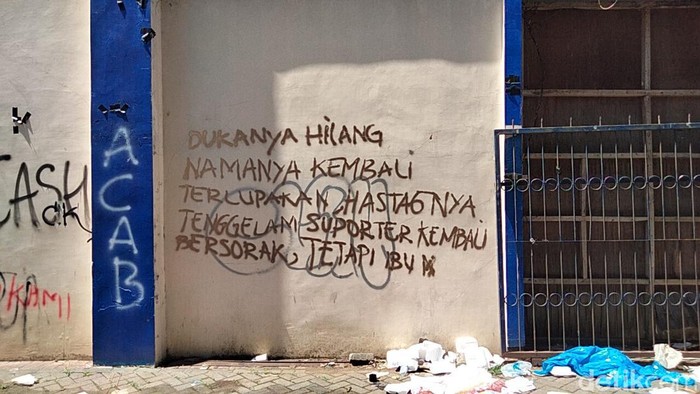 DUKANYA HILANG
NAMANYA KEMBALI
TERLUPAKAN, HASTAGNYA
TENGGELAM SUPORTER KEMBALI
BERSORAK, TETAPI IBU
ACAB
CASH
KAMI
detikcom